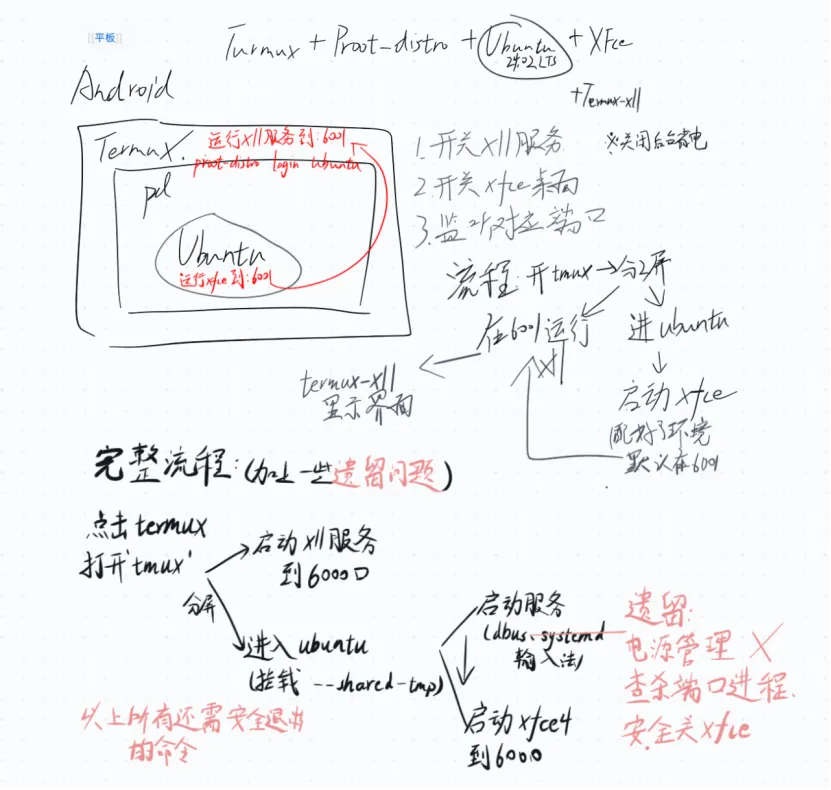 [[平板]]
Turmux + Proot-distro + Ubuntu + XFce
24.02 LTS
+Termux-x11
Android
Termux.
运行x11服务到:6001
proot-distro login ubuntu
pd
Ubuntu
运行xfce到:6001
1.开关x11服务 ※关闭后台省电
2.开关xfce桌面
3.监听对应端口
流程:开tmux→分屏
在6001运行
x11
进ubuntu
启动xfce
配好了环境
默认在6001
termux-x11
显示界面
完整流程:(加上一些遗留问题)
点击termux
打开'tmux'
分屏
启动x11服务
到6000口
进入ubuntu
(挂载 --shared-tmp)
启动服务
(dbus、systemd
输入法)
启动xfce4
到6000
遗留:
电源管理 X
查杀端口进程.
安全关xfce
以上所有还需安全退出
的命令